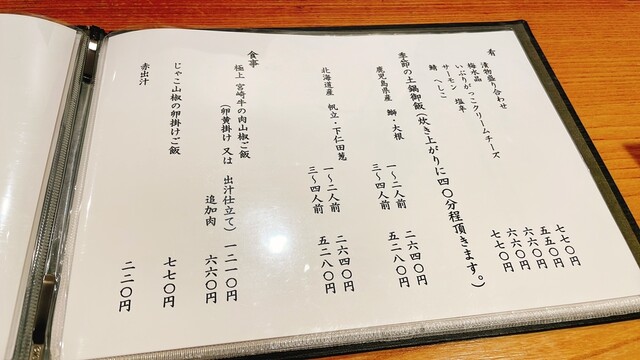 肴
漬物盛り合わせ 七七〇円
梅水晶 五五〇円
いぶりがっこクリームチーズ 六六〇円
サーモン 塩辛 六六〇円
鯖 へしこ 七七〇円
季節の土鍋御飯(炊き上がりに四〇分程頂きます。)
鹿児島県産 鰤・大根 一〜二人前 二六四〇円
三〜四人前 五二八〇円
北海道産 帆立・下仁田葱 一〜二人前 二六四〇円
三〜四人前 五二八〇円
食事
極上 宮崎牛の肉山椒ご飯
(卵黄掛け 又は 出汁仕立て) 一二一〇円
追加肉 六六〇円
じゃこ山椒の卵掛けご飯 七七〇円
赤出汁 二二〇円